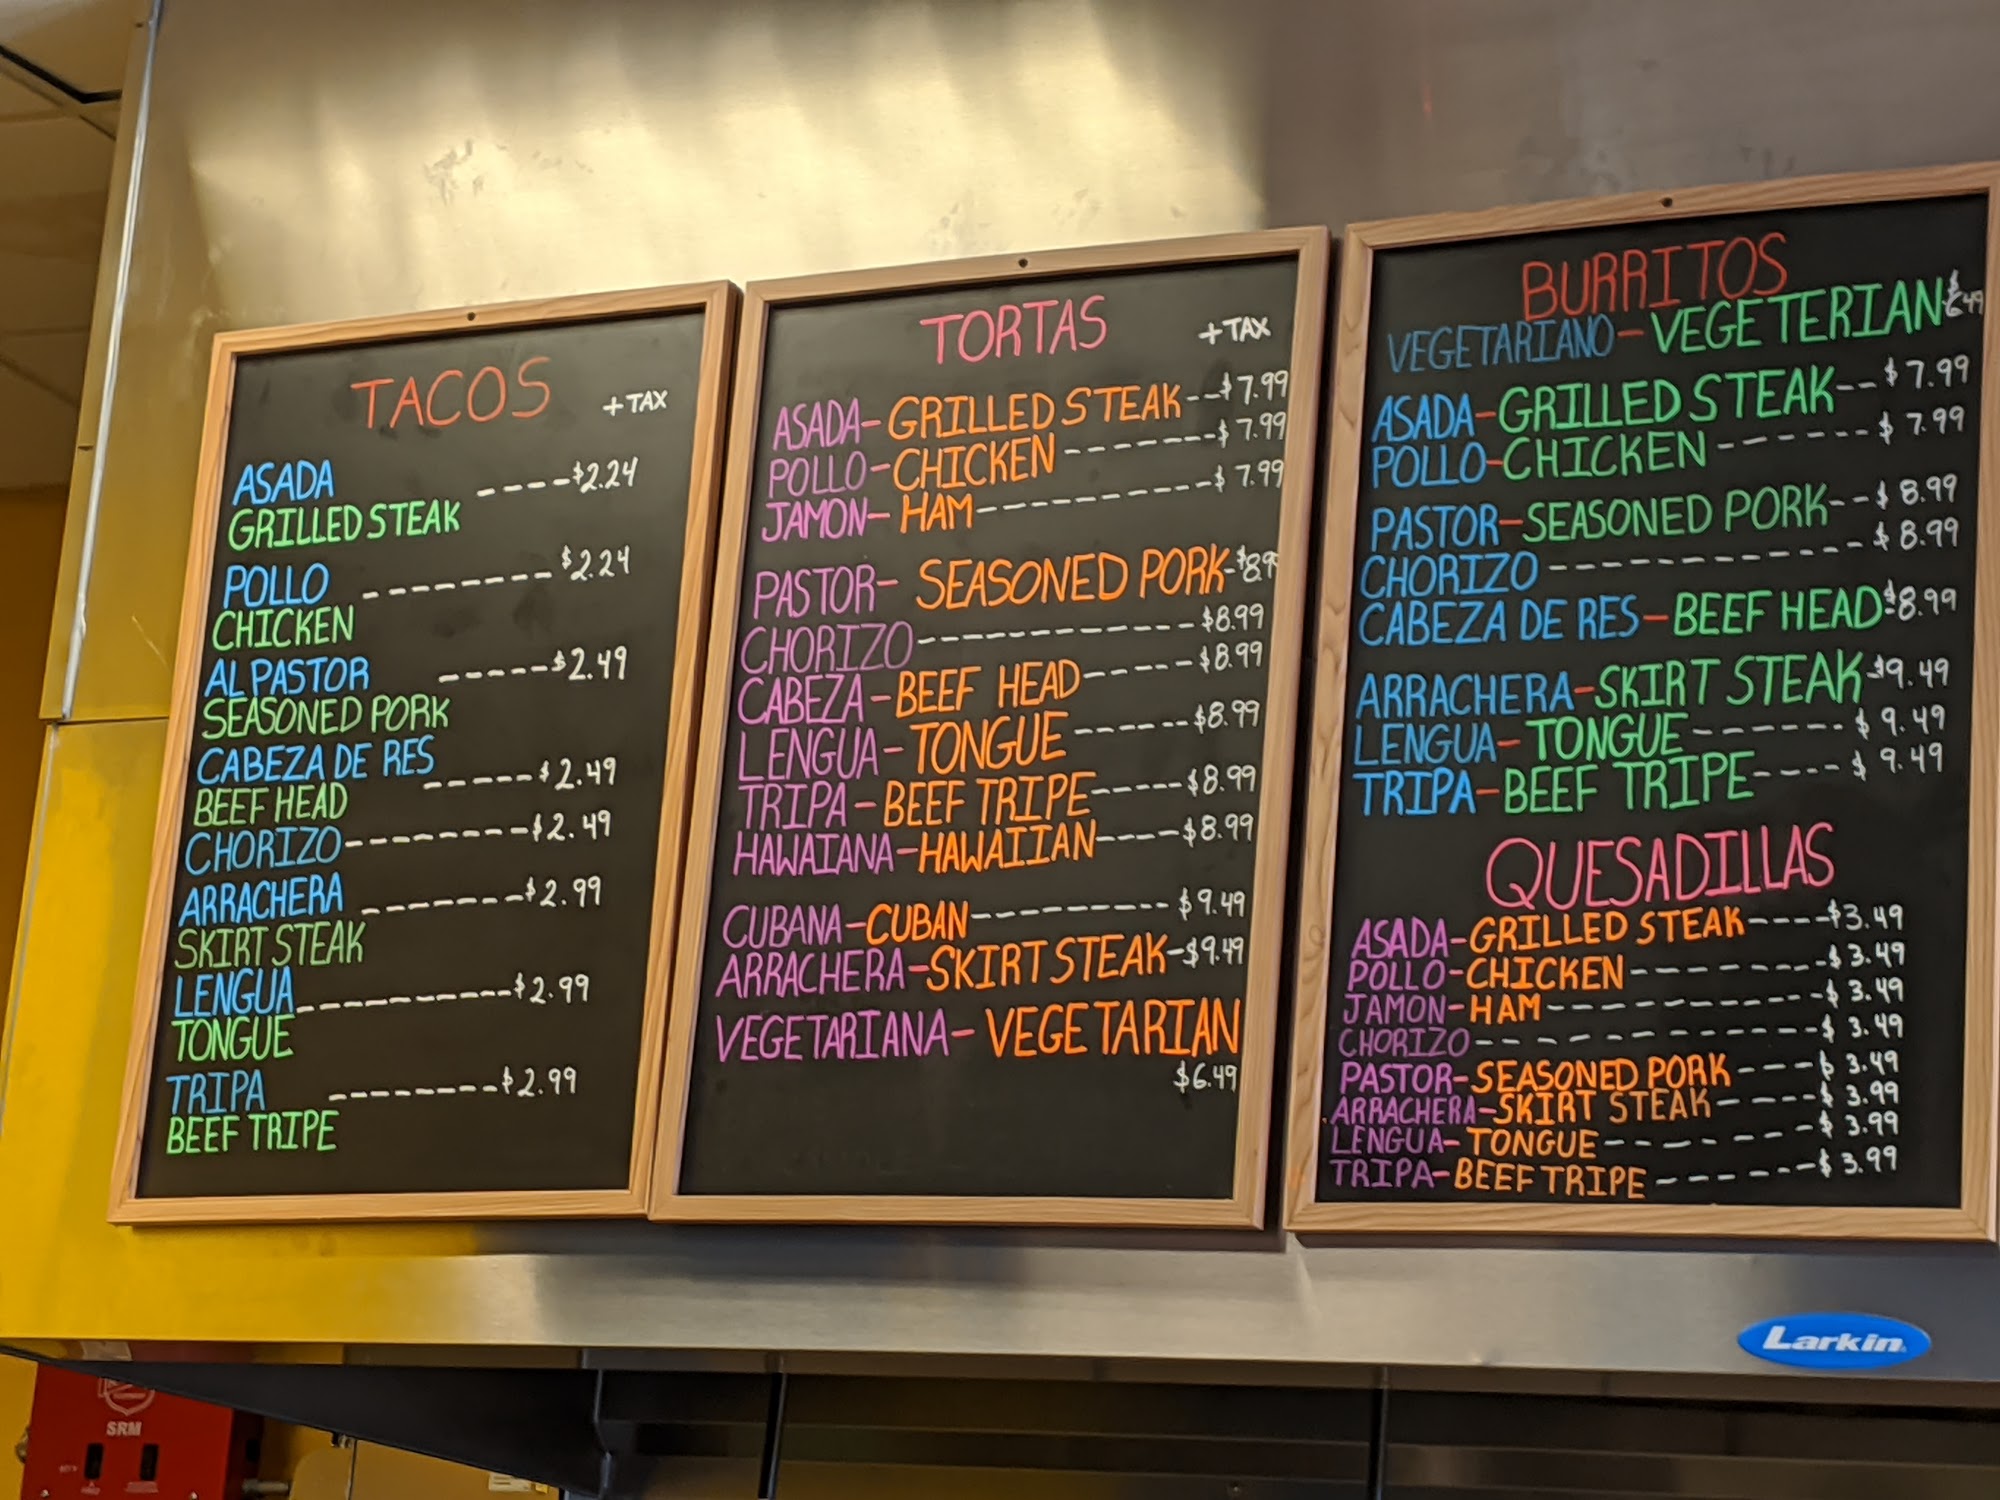 TACOS
+ TAX
ASADA ----$2.24
GRILLED STEAK
POLLO --------$2.24
CHICKEN
AL PASTOR -----$2.49
SEASONED PORK
CABEZA DE RES -----$2.49
BEEF HEAD
CHORIZO--------$2.49
ARRACHERA -------$2.99
SKIRT STEAK
LENGUA----------$2.99
TONGUE
TRIPA --------$2.99
BEEF TRIPE
TORTAS
+ TAX
ASADA-GRILLED STEAK--$7.99
POLLO-CHICKEN -------$7.99
JAMON-HAM----------$7.99
PASTOR- SEASONED PORK-$8.9
CHORIZO------------$8.99
CABEZA-BEEF HEAD-----$8.99
LENGUA-TONGUE-----$8.99
TRIPA-BEEF TRIPE-----$8.99
HAWAIANA-HAWAIIAN----$8.99
CUBANA-CUBAN---------$9.49
ARRACHERA-SKIRT STEAK-$9.49
VEGETARIANA- VEGETARIAN
$6.49
BURRITOS
VEGETARIANO-VEGETERIAN-$6.49
ASADA-GRILLED STEAK--$7.99
POLLO-CHICKEN -------$7.99
PASTOR-SEASONED PORK--$8.99
CHORIZO-----------$8.99
CABEZA DE RES-BEEF HEAD-$8.99
ARRACHERA-SKIRT STEAK-$9.49
LENGUA-TONGUE------$9.49
TRIPA-BEEF TRIPE----$9.49
QUESADILLAS
ASADA-GRILLED STEAK----$3.49
POLLO-CHICKEN--------$3.49
JAMON-HAM------------$3.49
CHORIZO------------$3.49
PASTOR-SEASONED PORK----$3.49
ARRACHERA-SKIRT STEAK----$3.99
LENGUA-TONGUE--------$3.99
TRIPA-BEEF TRIPE-------$3.99
Larkin
SRM